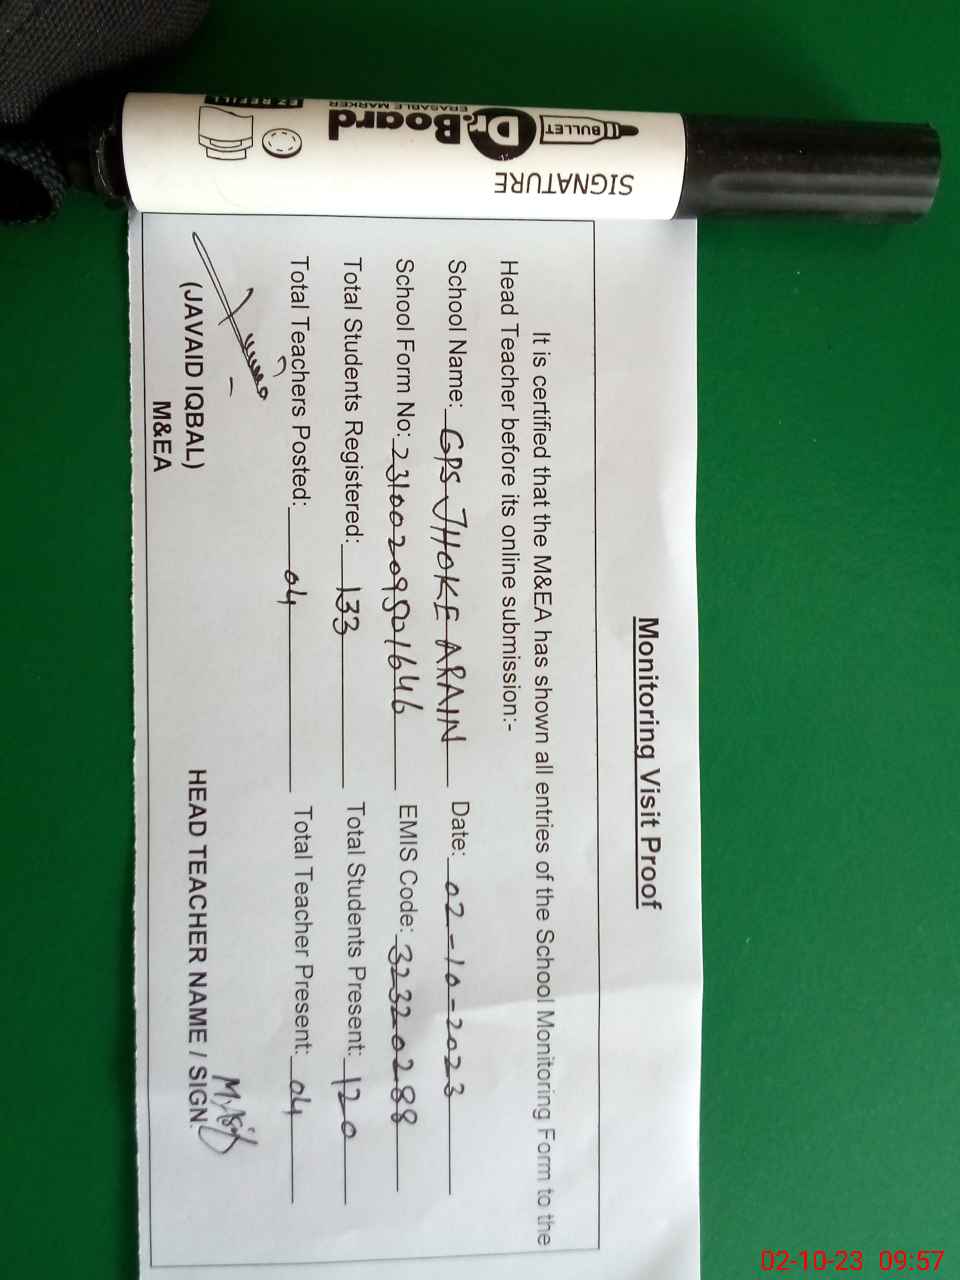 Monitoring Visit Proof
It is certified that the M&EA has shown all entries of the School Monitoring Form to the
Head Teacher before its online submission:-
School Name: GPS JHOKE ARAIN Date: 02-10-2023
School Form No: 23100209501646 EMIS Code: 32320288
Total Students Registered: 133 Total Students Present: 120
Total Teachers Posted: 04 Total Teacher Present: 04
(JAVAID IQBAL)
M&EA
HEAD TEACHER NAME / SIGN.
SIGNATURE
BULLET
Dr.Board
ERASABLE MARKER
EZ REFILL
02-10-23 09:57